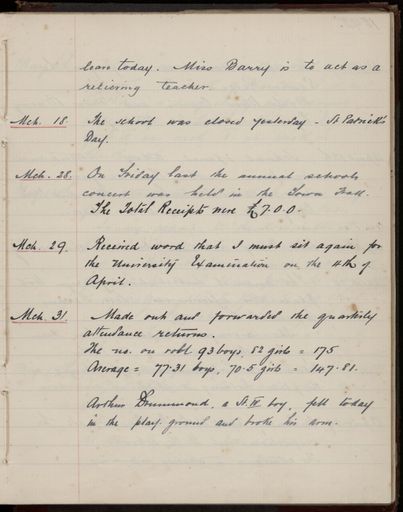 leave today. Miss Barry is to act as a
relieving teacher.
Mch. 18. The school was closed yesterday - St Patrick's
Day.
Mch. 28. On Friday last the annual schools
concert was held in the Town Hall.
The Total Receipts were £7.0.0.
Mch. 29. Received word that I must sit again for
the University Examination on the 4th of
April.
Mch. 31. Made out and forwarded the quarterly
attendance returns.
The no. on roll 93 boys, 82 girls = 175
Average = 77.31 boys, 70.5 girls = 147.81.
Arthur Drummond, a St. IV boy, fell today
in the play ground and broke his arm.